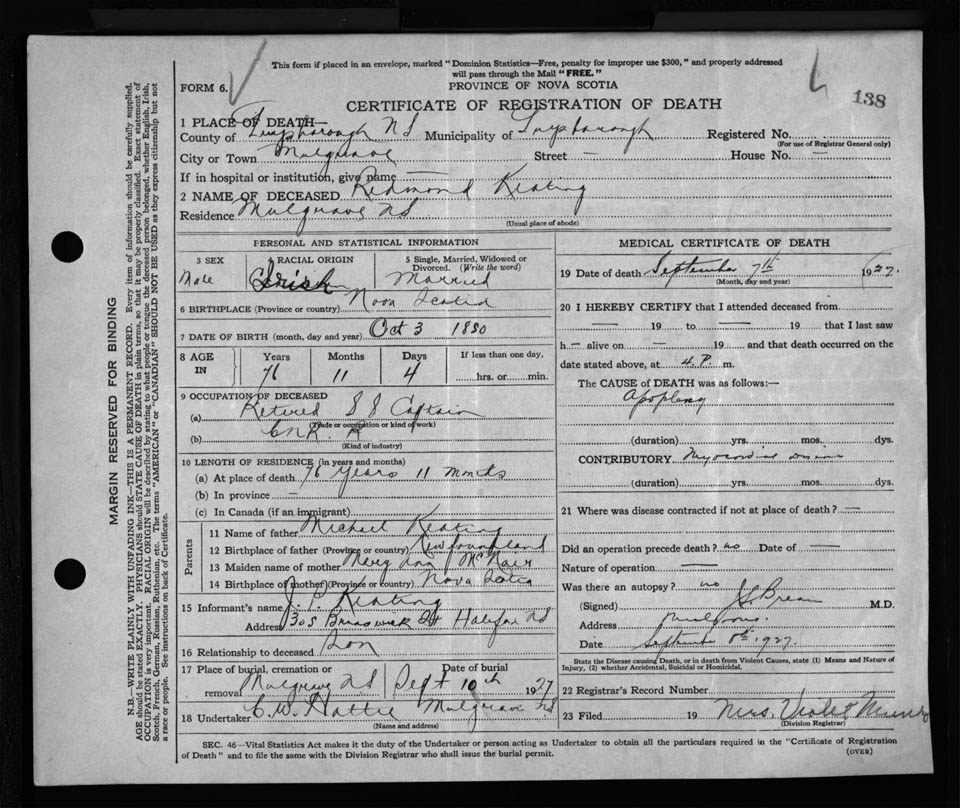 This form if placed in an envelope, marked "Dominion Statistics—Free, penalty for improper use $300," and properly addressed
will pass through the Mail "FREE."
FORM 6.
PROVINCE OF NOVA SCOTIA
138
CERTIFICATE OF REGISTRATION OF DEATH
1 PLACE OF DEATH—
County of Guysborough NS Municipality of Guysborough Registered No.
(For use of Registrar General only)
City or Town Mulgrave Street — House No. —
If in hospital or institution, give name —
2 NAME OF DECEASED Redmond Keating
Residence Mulgrave NS
(Usual place of abode)
PERSONAL AND STATISTICAL INFORMATION
3 SEX
Male
RACIAL ORIGIN
Irish
5 Single, Married, Widowed or
Divorced. (Write the word)
Married
6 BIRTHPLACE (Province or country) Nova Scotia
7 DATE OF BIRTH (month, day and year) Oct 3 1850
8 AGE IN
Years Months Days If less than one day,
76 11 4 hrs. or min.
9 OCCUPATION OF DECEASED
(a) Retired S S Captain
(Trade or occupation or kind of work)
(b) CNR
(Kind of industry)
10 LENGTH OF RESIDENCE (in years and months)
(a) At place of death 76 Years 11 months
(b) In province —
(c) In Canada (if an immigrant)
Parents
11 Name of father Michael Keating
12 Birthplace of father (Province or country) Newfoundland
13 Maiden name of mother Mary Ann McNair
14 Birthplace of mother (Province or country) Nova Scotia
15 Informant's name J. P. Keating
Address 305 Brunswick St Halifax NS
16 Relationship to deceased Son
17 Place of burial, cremation or Date of burial
removal Mulgrave NS Sept 10th 1927
18 Undertaker C. W. Hattie Mulgrave NS
MEDICAL CERTIFICATE OF DEATH
19 Date of death September 7th 1927.
(Month, day and year)
20 I HEREBY CERTIFY that I attended deceased from
— 19 to — 19 that I last saw
h— alive on — 19 and that death occurred on the
date stated above, at 4.P. m.
The CAUSE of DEATH was as follows:—
Apoplexy
(duration) yrs. mos. dys.
CONTRIBUTORY Myocardial disease
(duration) yrs. mos. dys.
21 Where was disease contracted if not at place of death? —
Did an operation precede death? no Date of —
Nature of operation —
Was there an autopsy? no
(Signed) M.D.
Address Mulgrave.
Date September 8th 1927.
State the Disease causing Death, or in death from Violent Causes, state (1) Means and Nature of
Injury, (2) whether Accidental, Suicidal or Homicidal.
22 Registrar's Record Number
23 Filed 19 Mrs. Violet
(Division Registrar)
SEC. 46—Vital Statistics Act makes it the duty of the Undertaker or person acting as Undertaker to obtain all the particulars required in the "Certificate of Registration
of Death" and to file the same with the Division Registrar who shall issue the burial permit.
(OVER)
MARGIN RESERVED FOR BINDING
N.B.—WRITE PLAINLY WITH UNFADING INK—THIS IS A PERMANENT RECORD. Every item of information should be carefully supplied.
AGE should be stated EXACTLY. PHYSICIANS should STATE CAUSE OF DEATH in plain terms, so that it may be properly classified. Exact statement of
OCCUPATION is very important. RACIAL ORIGIN will be described by stating to what people or tongue the deceased person belonged, whether English, Irish,
Scotch, French, German, Russian, Ruthenian, etc. The terms "AMERICAN" or "CANADIAN" SHOULD NOT BE USED as they express citizenship but not
a race or people. See instructions on back of Certificate.